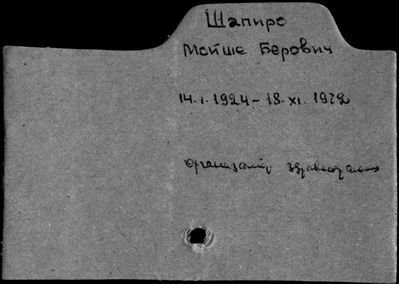 Шапиро
Мойше Берович
14.I.1924 - 18.XI.1972
организатор здравоохр.